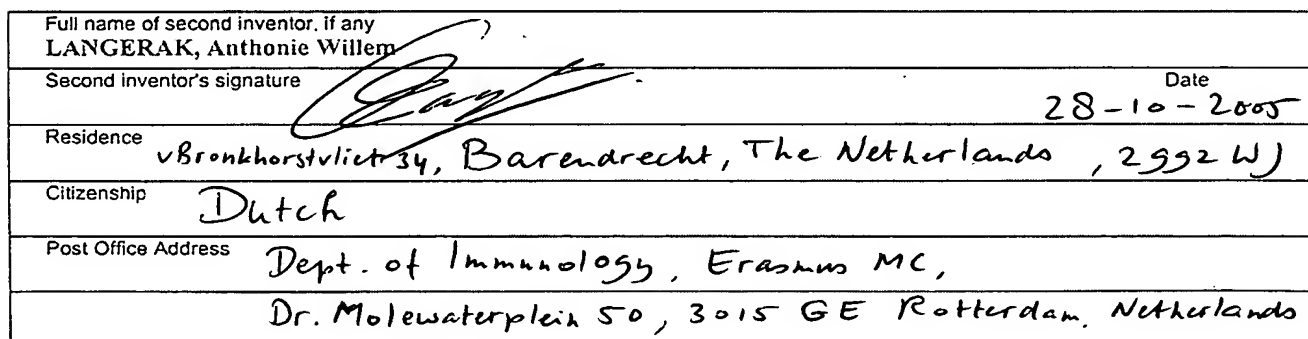 Full name of second inventor, if any
LANGERAK, Anthonie Willem
Second inventor's signature
Date
28-10-2005
Residence vBronkhorstvliet 34, Barendrecht, The Netherlands, 2992 WJ
Citizenship Dutch
Post Office Address Dept. of Immunology, Erasmus MC,
Dr. Molewaterplein 50, 3015 GE Rotterdam, Netherlands